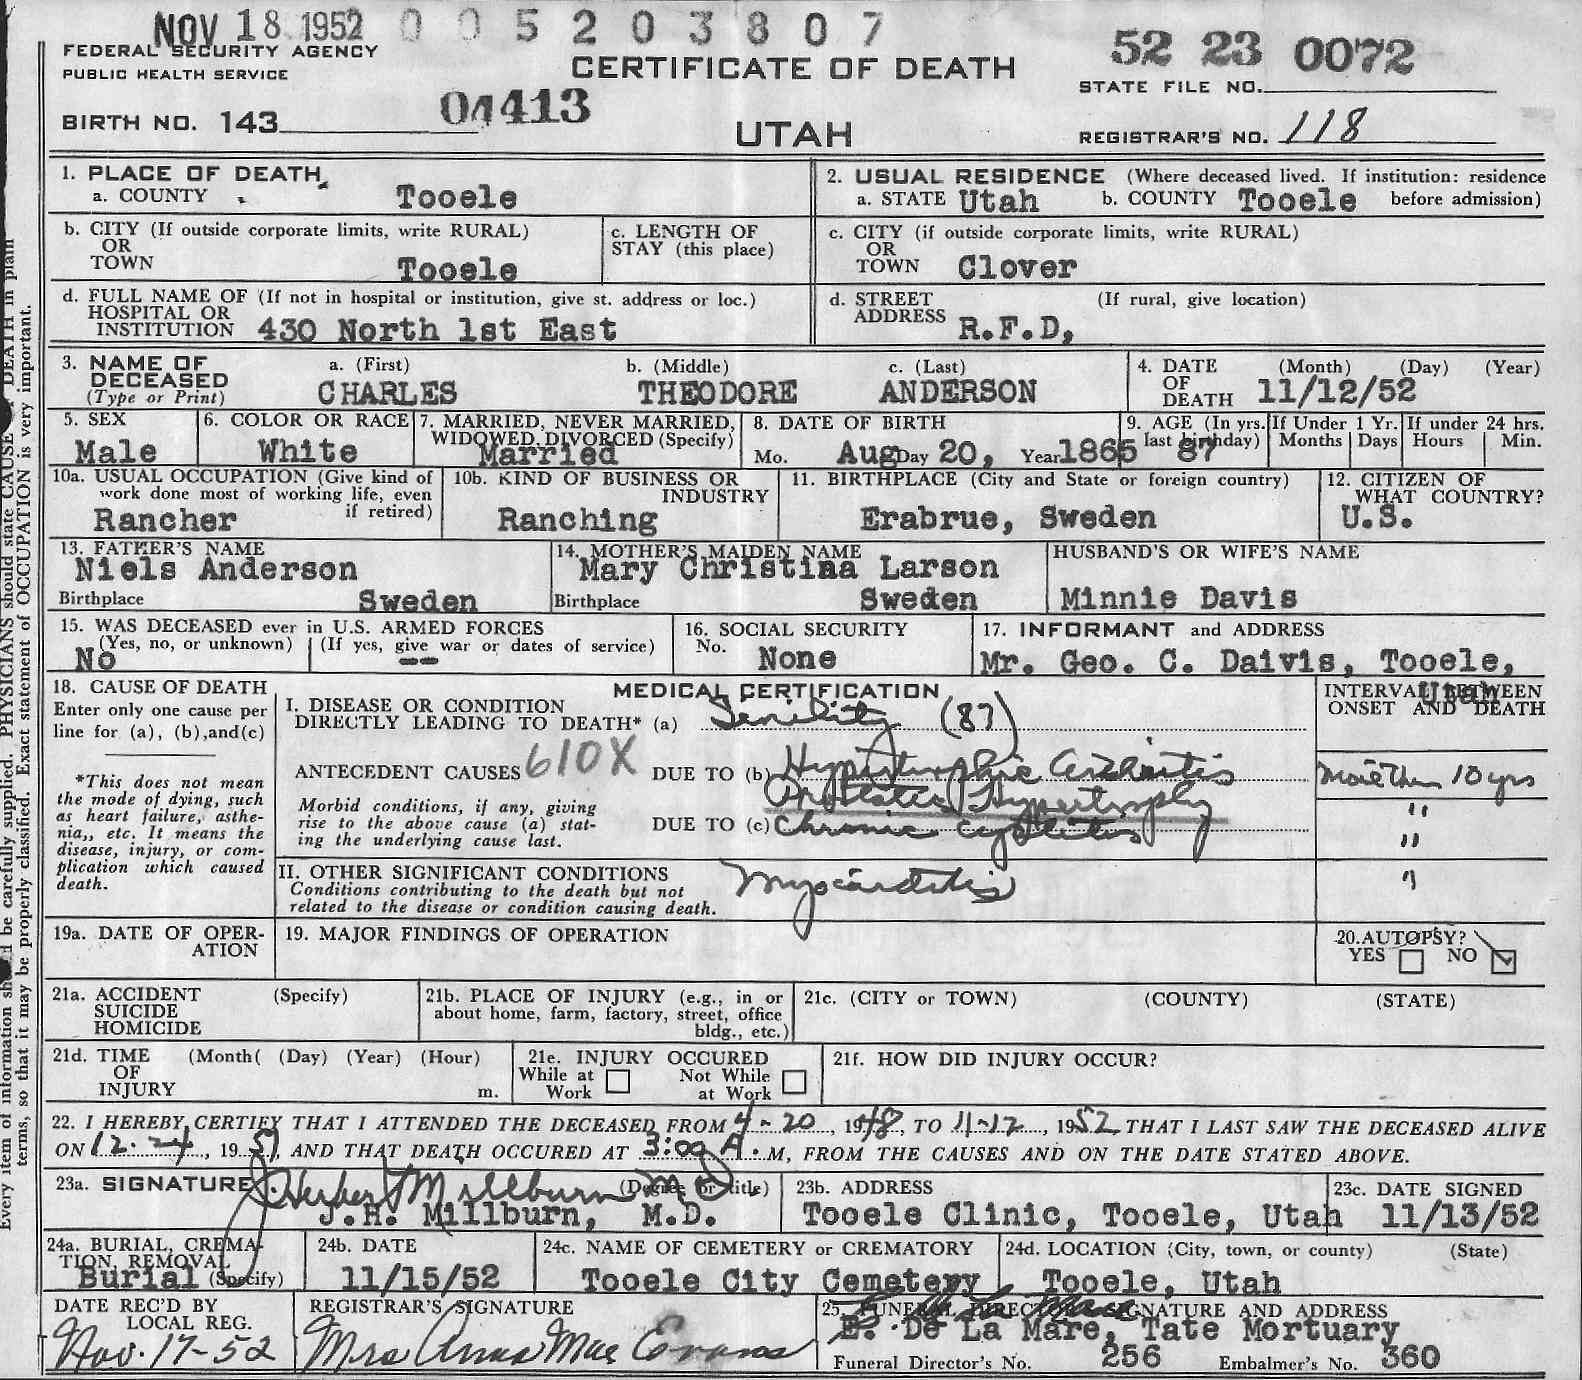 NOV 18 1952 0 0 5 2 0 3 8 0 7
52 23 0072
FEDERAL SECURITY AGENCY
PUBLIC HEALTH SERVICE
CERTIFICATE OF DEATH
STATE FILE NO.
BIRTH NO. 143 04413
UTAH
REGISTRAR'S NO. 118
1. PLACE OF DEATH
a. COUNTY Tooele
2. USUAL RESIDENCE (Where deceased lived. If institution: residence before admission)
a. STATE Utah b. COUNTY Tooele
b. CITY (If outside corporate limits, write RURAL) OR TOWN Tooele
c. LENGTH OF STAY (this place)
c. CITY (if outside corporate limits, write RURAL) OR TOWN Clover
d. FULL NAME OF (If not in hospital or institution, give st. address or loc.)
HOSPITAL OR
INSTITUTION 430 North 1st East
d. STREET ADDRESS (If rural, give location)
R.F.D,
3. NAME OF DECEASED (Type or Print)
a. (First) b. (Middle) c. (Last)
CHARLES THEODORE ANDERSON
4. DATE OF DEATH (Month) (Day) (Year)
11/12/52
5. SEX
Male
6. COLOR OR RACE
White
7. MARRIED, NEVER MARRIED, WIDOWED, DIVORCED (Specify)
Married
8. DATE OF BIRTH
Mo. Aug Day 20, Year 1865
9. AGE (In yrs. last birthday) 87
If Under 1 Yr. Months Days
If under 24 hrs. Hours Min.
10a. USUAL OCCUPATION (Give kind of work done most of working life, even if retired)
Rancher
10b. KIND OF BUSINESS OR INDUSTRY
Ranching
11. BIRTHPLACE (City and State or foreign country)
Erabrue, Sweden
12. CITIZEN OF WHAT COUNTRY?
U.S.
13. FATHER'S NAME
Niels Anderson
Birthplace Sweden
14. MOTHER'S MAIDEN NAME
Mary Christina Larson
Birthplace Sweden
HUSBAND'S OR WIFE'S NAME
Minnie Davis
15. WAS DECEASED ever in U.S. ARMED FORCES
(Yes, no, or unknown) (If yes, give war or dates of service)
No --
16. SOCIAL SECURITY No.
None
17. INFORMANT and ADDRESS
Mr. Geo. C. Daivis, Tooele,
Utah
18. CAUSE OF DEATH
Enter only one cause per
line for (a), (b),and(c)
*This does not mean
the mode of dying, such
as heart failure, asthe-
nia,, etc. It means the
disease, injury, or com-
plication which caused
death.
MEDICAL CERTIFICATION
I. DISEASE OR CONDITION
DIRECTLY LEADING TO DEATH* (a) Senility (87)
ANTECEDENT CAUSES 610X DUE TO (b) Hypertrophic arthritis
Prostatic Hypertrophy
Morbid conditions, if any, giving
rise to the above cause (a) stat-
ing the underlying cause last.
DUE TO (c) Chronic cystitis
II. OTHER SIGNIFICANT CONDITIONS
Conditions contributing to the death but not
related to the disease or condition causing death.
Myocarditis
INTERVAL BETWEEN
ONSET AND DEATH
More than 10 yrs
"
"
"
19a. DATE OF OPER-
ATION
19. MAJOR FINDINGS OF OPERATION
20. AUTOPSY?
YES NO
21a. ACCIDENT
SUICIDE
HOMICIDE
(Specify)
21b. PLACE OF INJURY (e.g., in or
about home, farm, factory, street, office
bldg., etc.)
21c. (CITY or TOWN) (COUNTY) (STATE)
21d. TIME OF INJURY (Month( (Day) (Year) (Hour) m.
21e. INJURY OCCURED
While at Work Not While at Work
21f. HOW DID INJURY OCCUR?
22. I HEREBY CERTIFY THAT I ATTENDED THE DECEASED FROM 4-20, 1948, TO 11-12, 1952, THAT I LAST SAW THE DECEASED ALIVE
ON 12-24, 1951, AND THAT DEATH OCCURED AT 3:00 A.M, FROM THE CAUSES AND ON THE DATE STATED ABOVE.
23a. SIGNATURE (Degree or title)
J. Herbert Millburn M.D.
J.H. Millburn, M.D.
23b. ADDRESS
Tooele Clinic, Tooele, Utah
23c. DATE SIGNED
11/13/52
24a. BURIAL, CREMA-
TION, REMOVAL
Burial (Specify)
24b. DATE
11/15/52
24c. NAME OF CEMETERY or CREMATORY
Tooele City Cemetery
24d. LOCATION (City, town, or county) (State)
Tooele, Utah
DATE REC'D BY
LOCAL REG.
Nov. 17-52
REGISTRAR'S SIGNATURE
Mrs Anna Mae Evans
25. FUNERAL DIRECTOR'S SIGNATURE AND ADDRESS
E. De La Mare, Tate Mortuary
Funeral Director's No. 256 Embalmer's No. 360
Every item of information should be carefully supplied. PHYSICIANS should state CAUSE OF DEATH in plain
terms, so that it may be properly classified. Exact statement of OCCUPATION is very important.